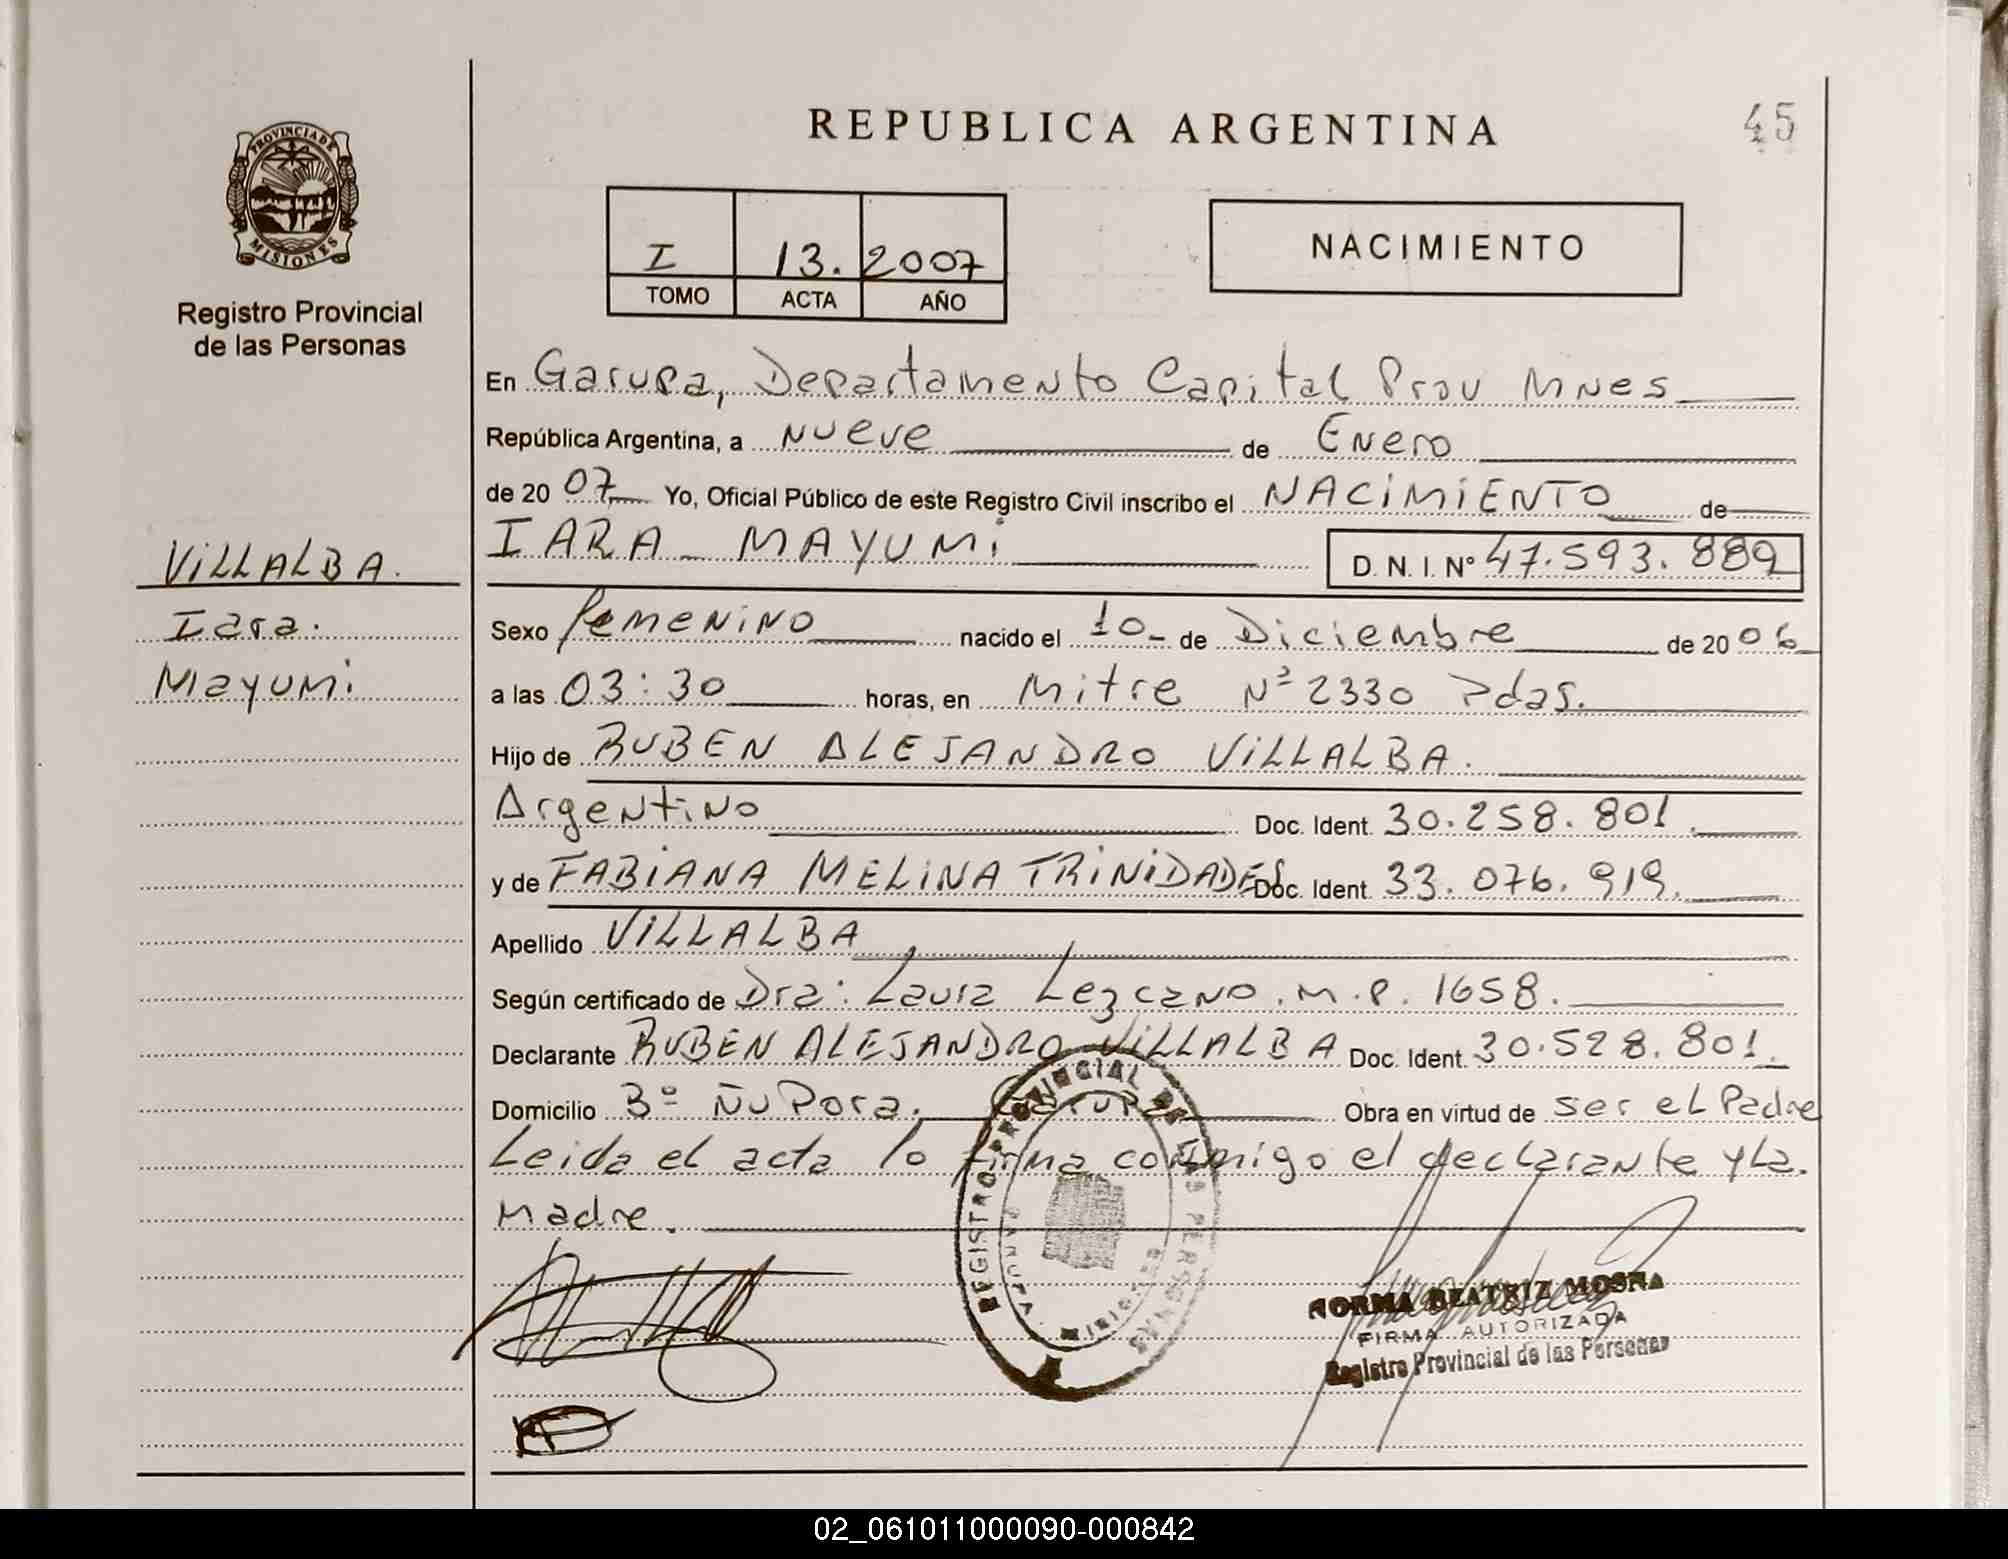 PROVINCIA DE
MISIONES
Registro Provincial
de las Personas
VILLALBA.
Iara.
Mayumi
REPUBLICA ARGENTINA
45
I 13. 2007
TOMO ACTA AÑO
NACIMIENTO
En Garupa, Departamento Capital Prov Mnes
República Argentina, a Nueve de Enero
de 20 07 Yo, Oficial Público de este Registro Civil inscribo el NACIMIENTO de
IARA MAYUMI D. N. I. Nº 47.593.889
Sexo femenino nacido el 10 de Diciembre de 20 06
a las 03:30 horas, en Mitre Nº 2330 Pdas.
Hijo de RUBEN ALEJANDRO VILLALBA.
Argentino Doc. Ident. 30.258.801.
y de FABIANA MELINA TRINIDADES Doc. Ident. 33.076.919.
Apellido VILLALBA
Según certificado de Dra: Laura Lezcano. M.P. 1658.
Declarante RUBEN ALEJANDRO VILLALBA Doc. Ident. 30.528.801.
Domicilio Bº Ñu Pora. Garupa Obra en virtud de ser el Padre
Leida el acta lo firma conmigo el declarante y La.
Madre.
REGISTRO PROVINCIAL DE LAS PERSONAS
GARUPA
MISIONES
NORMA BEATRIZ MOSNA
FIRMA AUTORIZADA
Registro Provincial de las Personas
02_061011000090-000842